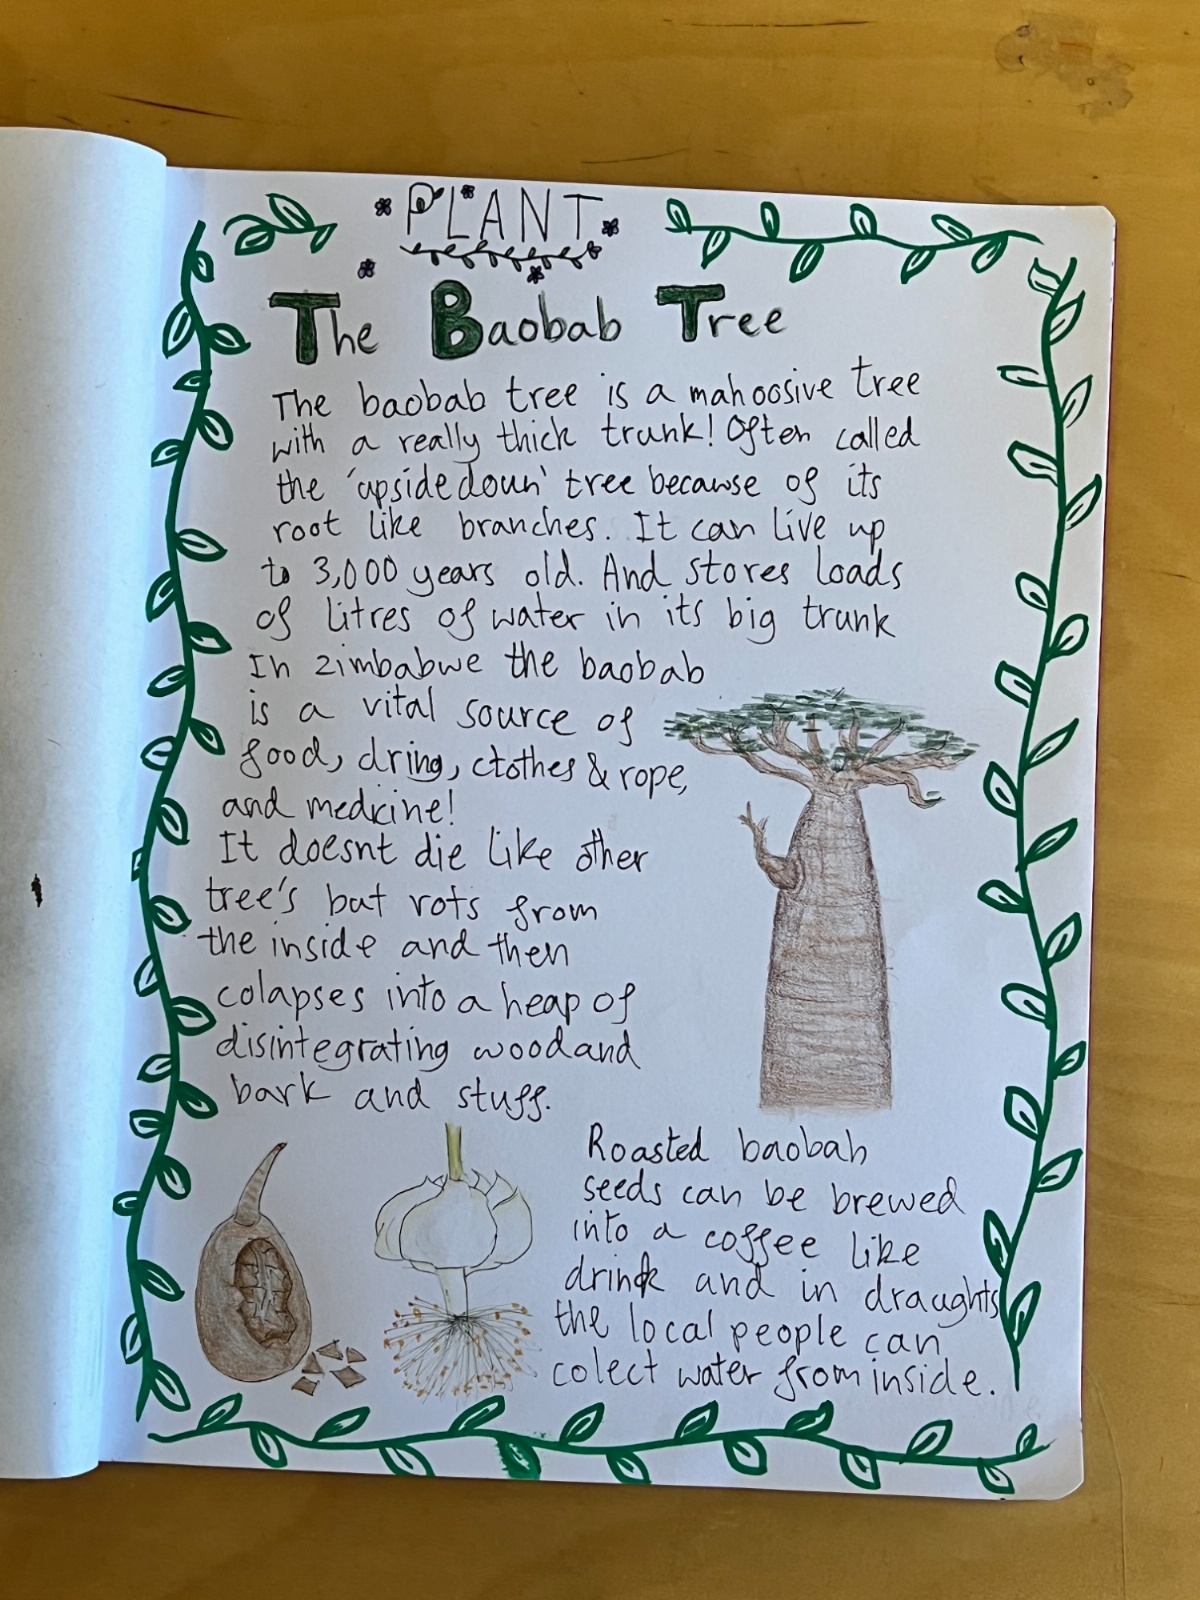 PLANT
The Baobab Tree
The baobab tree is a mahoosive tree
with a really thick trunk! Often called
the 'upside doun' tree because of its
root like branches. It can live up
to 3,000 years old. And stores loads
of litres of water in its big trunk
In zimbabwe the baobab
is a vital source of
food, dring, ctothes & rope,
and medicine!
It doesnt die like other
tree's but rots from
the inside and then
colapses into a heap of
disintegrating wood and
bark and stuff.
Roasted baobab
seeds can be brewed
into a coffee like
drink and in draughts
the local people can
colect water from inside.